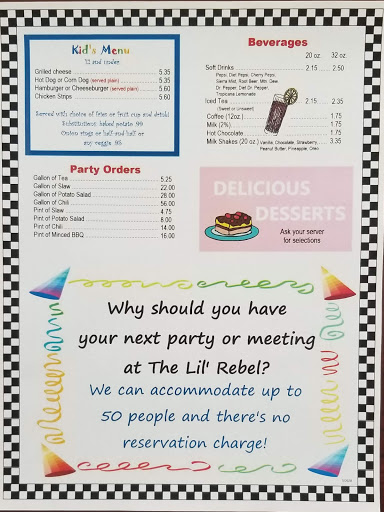 Kid's Menu
12 and under
Grilled cheese 5.35
Hot Dog or Corn Dog (served plain) 5.35
Hamburger or Cheeseburger (served plain) 5.60
Chicken Strips 5.60
Served with choice of fries or fruit cup and drink!
Substitutions: baked potato .99
Onion rings or half and half or
any veggie .95
Party Orders
Gallon of Tea 5.25
Gallon of Slaw 22.00
Gallon of Potato Salad 28.00
Gallon of Chili 56.00
Pint of Slaw 4.75
Pint of Potato Salad 8.00
Pint of Chili 14.00
Pint of Minced BBQ 16.00
Beverages
20 oz. 32 oz.
Soft Drinks 2.15 2.50
Pepsi, Diet Pepsi, Cherry Pepsi,
Sierra Mist, Root Beer, Mtn. Dew
Dr. Pepper, Diet Dr. Pepper,
Tropicana Lemonade
Iced Tea 2.15 2.35
(Sweet or Unsweet)
Coffee (12oz.) 1.75
Milk (2%) 1.75
Hot Chocolate 1.75
Milk Shakes (20 oz.) Vanilla, Chocolate, Strawberry, 3.35
Peanut Butter, Pineapple, Oreo
DELICIOUS
DESSERTS
Ask your server
for selections
Why should you have
your next party or meeting
at The Lil' Rebel?
We can accommodate up to
50 people and there's no
reservation charge!